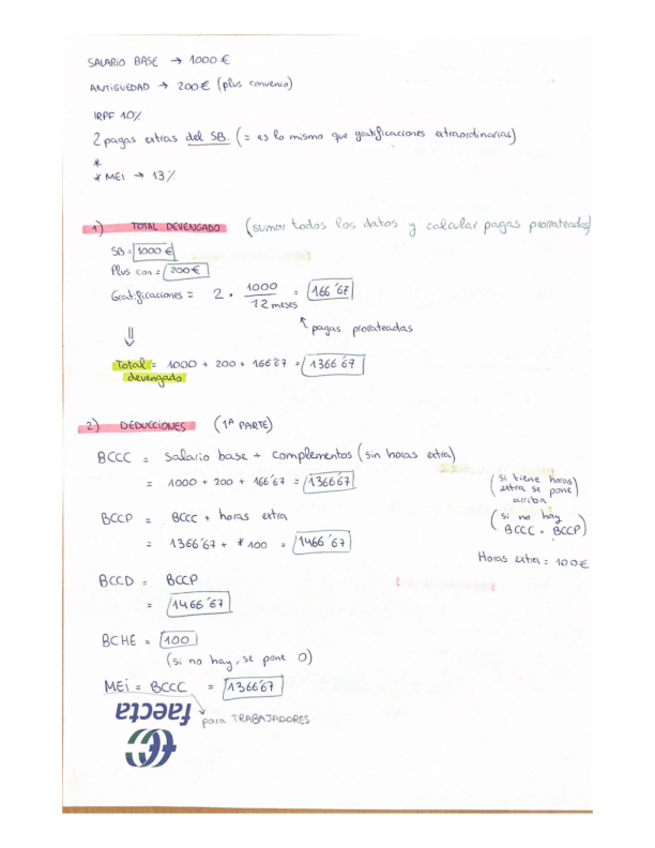 SALARIO BASE → 1000 €
ANTIGÜEDAD → 200 € (plus convenio)
IRPF 10%
2 pagas extras del SB. (= es lo mismo que gratificaciones extraordinarias)
*
* MEi → 13%
1) TOTAL DEVENGADO (sumar todos los datos y calcular pagas prorrateadas)
SB = 1000 €
Plus con = 200 €
Gratificaciones = 2 · 1000 / 12 meses = 166'67
↖ pagas prorrateadas
⇓
Total devengado = 1000 + 200 + 166'67 = 1366'67
2) DEDUCCIONES (1ª PARTE)
BCCC = Salario base + complementos (sin horas extra)
= 1000 + 200 + 166'67 = 1366'67
(si tiene horas extra se pone arriba)
BCCP = BCCC + horas extra
(si no hay BCCC = BCCP)
= 1366'67 + * 100 = 1466'67
Horas extra = 100 €
BCCD = BCCP
= 1466'67
BCHE = 100
(si no hay, se pone 0)
MEi = BCCC = 1366'67
para TRABAJADORES
faecta